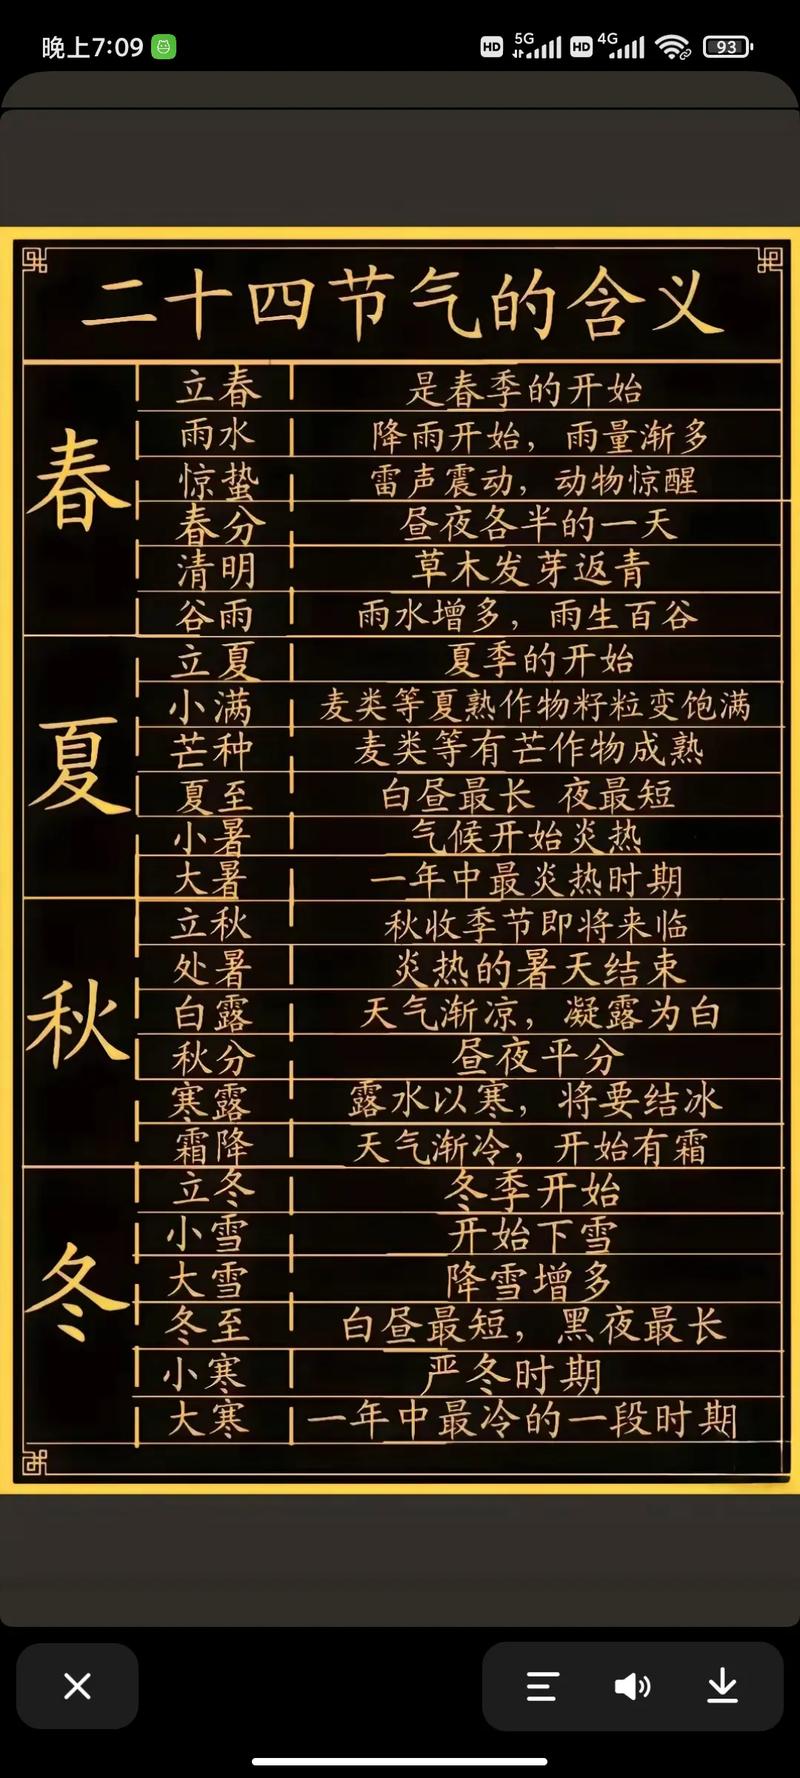 晚上7:09 HD 5G HD 4G 93
二十四节气的含义
春
立春 是春季的开始
雨水 降雨开始，雨量渐多
惊蛰 雷声震动，动物惊醒
春分 昼夜各半的一天
清明 草木发芽返青
谷雨 雨水增多，雨生百谷
夏
立夏 夏季的开始
小满 麦类等夏熟作物籽粒变饱满
芒种 麦类等有芒作物成熟
夏至 白昼最长 夜最短
小暑 气候开始炎热
大暑 一年中最炎热时期
秋
立秋 秋收季节即将来临
处暑 炎热的暑天结束
白露 天气渐凉，凝露为白
秋分 昼夜平分
寒露 露水以寒，将要结冰
霜降 天气渐冷，开始有霜
冬
立冬 冬季开始
小雪 开始下雪
大雪 降雪增多
冬至 白昼最短，黑夜最长
小寒 严冬时期
大寒 一年中最冷的一段时期